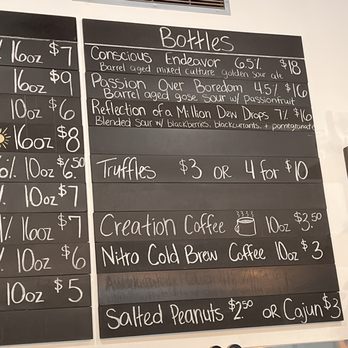 % 16oz $7
% 16oz $9
10oz $6
16oz $8
6% 10oz $6.50
% 10oz $7
% 16oz $7
% 10oz $6
10oz $5
Bottles
Conscious Endeavor 6.5% $18
Barrel aged mixed culture golden sour ale
Passion Over Boredom 4.5% $16
Barrel aged gose sour w/ passionfruit
Reflection of a Million Dew Drops 7% $16
Blended Sour w/ blackberries, blackcurrants, + pomegranate
Truffles $3 OR 4 for $10
Creation Coffee 10oz $3.50
Nitro Cold Brew Coffee 10oz $3
Salted Peanuts $2.50 OR Cajun $3